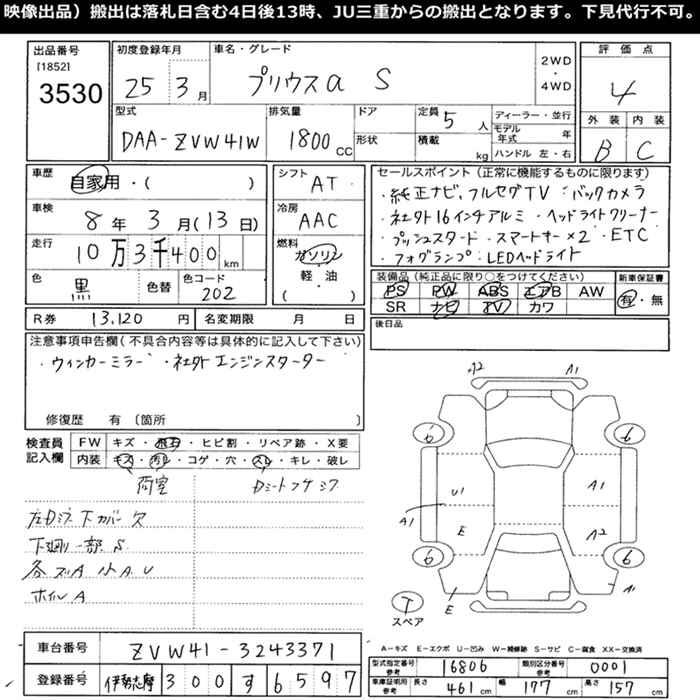 映像出品）搬出は落札日含む4日後13時、JU三重からの搬出となります。下見代行不可。
出品番号 [1852] 3530
初度登録年月 25年 3月
車名・グレード プリウスα S
2WD・4WD
評価点 4
外装 B 内装 C
型式 DAA-ZVW41W
排気量 1800CC
ドア 形状
定員 5人
積載 kg
ディーラー・並行
モデル年式 年
ハンドル 左・右
車歴 自家用・( )
車検 8年 3月(13日)
走行 10万3千400km
色 黒 色替 色コード 202
シフト AT
冷房 AAC
燃料 ガソリン・軽・油 ( )
セールスポイント（正常に機能するものに限ります）
・純正ナビ、フルセグTV・バックカメラ
・社外16インチアルミ・ヘッドライトクリーナー
・プッシュスタート・スマートキー×2・ETC
・フォグランプ・LEDヘッドライト
装備品（純正品に限り○をつけてください）
PS PW ABS エアB AW
SR ナビ TV カワ
新車保証書 有・無
R券 13,120円 名変期限 月 日
後日品
注意事項申告欄（不具合内容等は具体的に記入して下さい）
・ウィンカーミラー ・社外エンジンスターター
修復歴 有〔箇所 〕
検査員記入欄
FW キズ・飛石・ヒビ割・リペア跡・X要
内装 キズ・汚レ・コゲ・穴・スレ・キレ・破レ
荷室 Dシートコゲ シワ
下カバー欠
下廻り一部S
各ズリA 小A U
ホイルA
A2 A1
6 6
U1 A1
A1 E A2
6 6
E A1
T スペア
A－キズ E－エクボ U－凹み W－補修跡 S－サビ C－腐食 XX－交換済
車台番号 ZVW41-3243371
登録番号 伊勢志摩 300 す 6597
型式指定番号 参考 16806 類別区分番号 参考 0001
車庫証明用 参考 長さ 461cm 幅 177cm 高さ 157cm